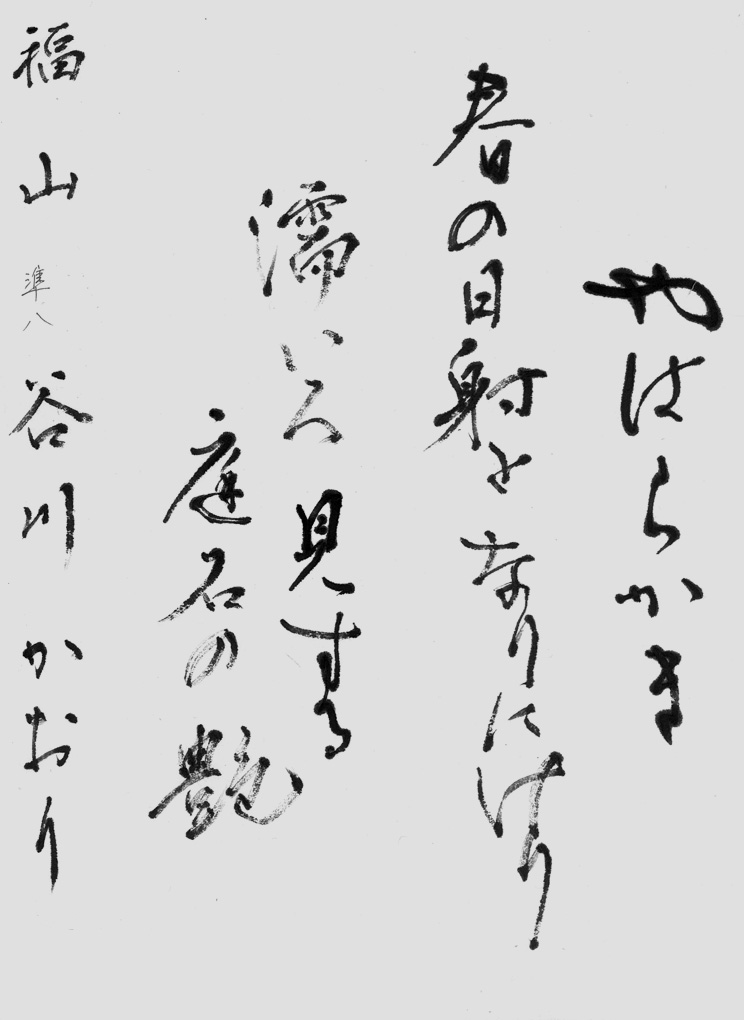 やはらかき
春の日射となりにけり
濡いろ見する
庭石の艶
福山 準八 谷川 かおり